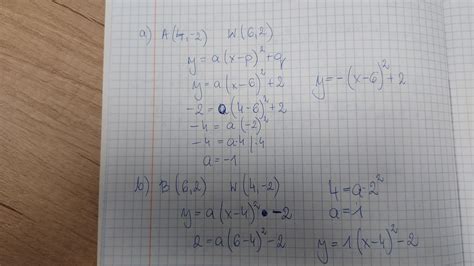 a) A(4,-2) W(6,2)
y=a(x-p)²+q
y=a(x-6)²+2
y=-(x-6)²+2
-2=a(4-6)²+2
-4=a(-2)²
-4=a·4 |:4
a=-1
b) B(6,2) W(4,-2)
4=a·2²
y=a(x-4)²-2
a=1
2=a(6-4)²-2
y=1(x-4)²-2